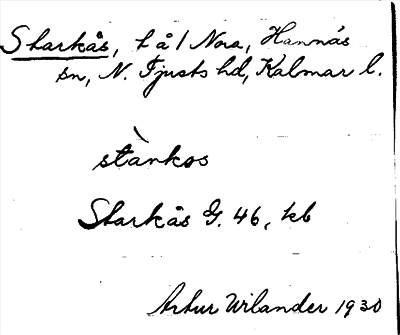 Starkås, t å / Nora, Hannäs
sn, N. Tjusts hd, Kalmar l.
stànkos
Starkås G. 46, kb
Artur Wilander 1930